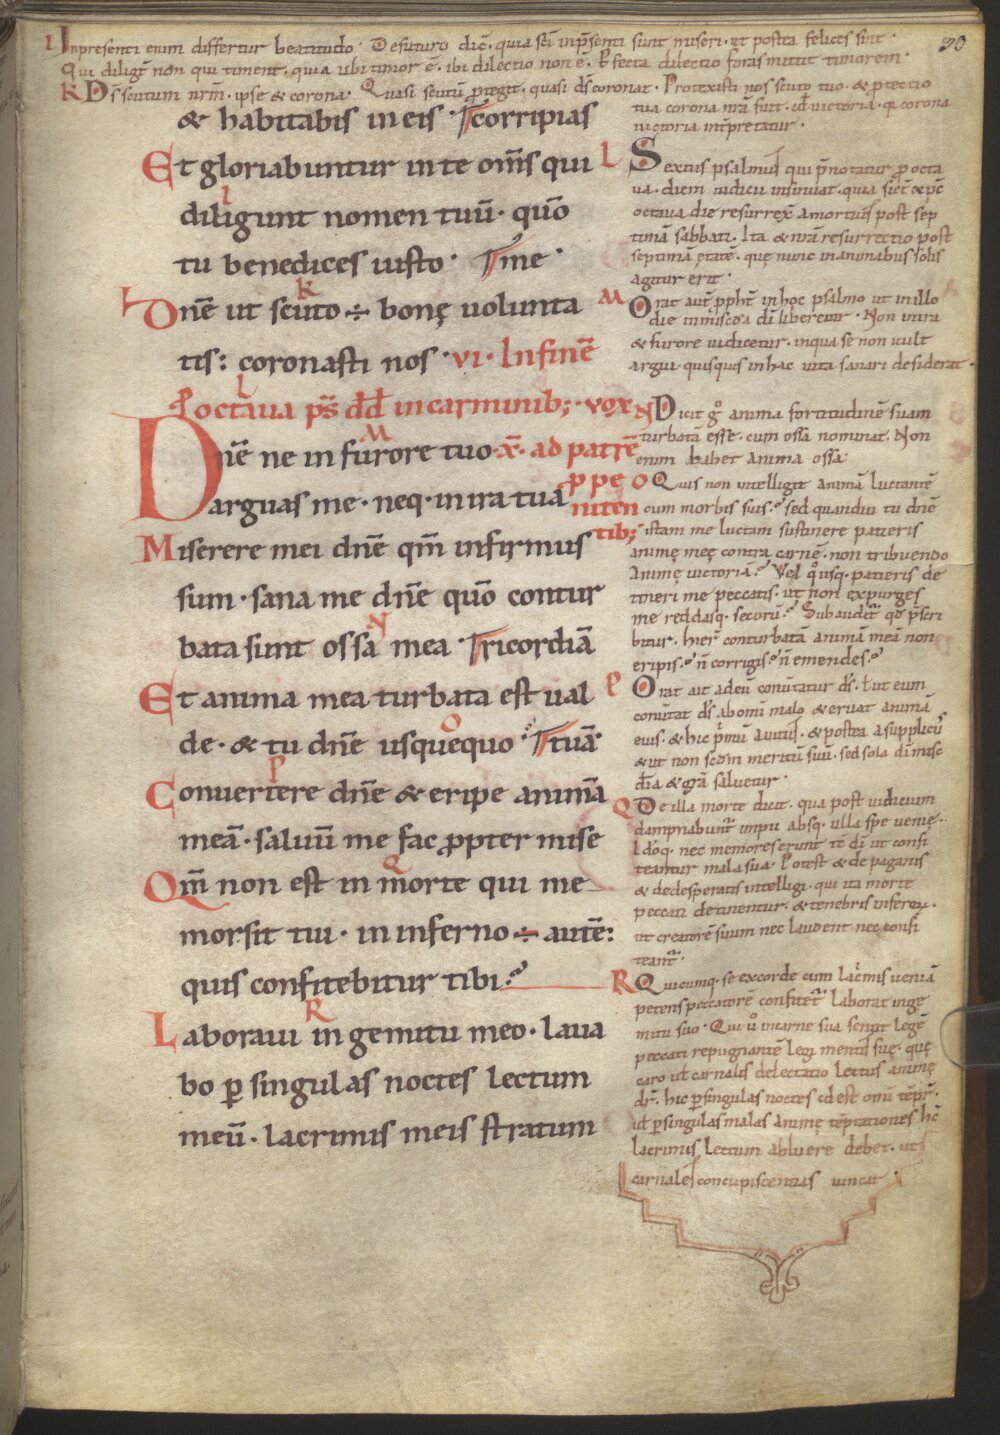 I Inpresenti enim differtur beatitudo. De futuro dic̄. quia sc̄i inp̄senti sunt miseri. ut postea felices sint.
Qui diligt̄ non qui timent. quia ubi timor ē. ibi dilectio non ē. Perfecta dilectio foras mittit timorem.
K Ds̄ scutum nr̄m. ipse & corona. Quasi scutū protegit. quasi ds̄ coronat. Protexisti nos scuto tuo. & ptectio
tua corona nr̄a fuit. uł victoria. q̄ corona
uictoria int̄pretatur.
& habitabis in eis. corripias
Et gloriabuntur in te om̄s qui
diligunt nomen tuū. quō
tu benedices iusto. me.
Dn̄e ut scuto ÷ bonę uolunta
tis: coronasti nos. vi. In finē
P octaua ps̄ dd̄ in carminib; vox
Dn̄e ne in furore tuo. x̄. ad patrē
arguas me. neq. in ira tua
p pe
niten
tib;
Miserere mei dn̄e qm̄ infirmus
sum. sana me dn̄e quō contur
bata sunt ossa mea. ricordiā
Et anima mea turbata est ual
de. & tu dn̄e usquequo. tuā.
Conuertere dn̄e & eripe animā
meā. saluū me fac ppter mise
Qm̄ non est in morte qui me
morsit tui. in inferno ÷ autē:
quis confitebitur tibi?
Laboraui in gemitu meo. laua
bo p singulas noctes lectum
meū. lacrimis meis stratum
L Sextus psalmus qui p̄notatur p octa
ua. diem iudicii insinuat. quia sic̄ xp̄c
octaua die resurrex̄ a mortuis post sep
timā sabbati. Ita & nr̄a resurrectio post
septimā ętatē. quę nunc in animabus solis
agitur erit.
M Orat aut̄ pph̄t in hoc psalmo ut in illo
die inmis̄cda di liberetur. Non in ira
& furore iudicetur. in qua se non uult
argui. quisquis in hac uita sanari desiderat.
N Dicit g̊ anima fortitudinē suam
turbatā esse. cum ossa nominat. Non
enim habet anima ossa.
O Quis non intelligit animā luctantē
cum morbis suis? sed quandiu tu dn̄e
istam me luctam sustinere pateris
animę męę contra carnē. non tribuendo
animę uictoriā? Vel q̊usq. pateris de
tineri me peccatis. ut non expurges
me reddasq. securū? Subaudit̄ qd̄ p̄scri
bitur. hier̄ conturbatā animā meā non
eripis? n̄ corrigis? n̄ emendes?
P Orat ait ad eū conūtatur ds̄. ł ut eum
conūtat ds̄ ab omni malo & eruat animā
eius. & hic p̄mū a uitiis. & postea a suppliciis
& ut non scdm meritū suū. sed sola di misc̄
dia & gr̄a saluetur.
Q De illa morte dicit. qua post iudicium
dampnabunt̄ impii absq. ulla spe uenię.
Idoq. nec memores erunt tē di ut confi
teantur mala sua. Potest & de paganis
& de desperatis intelligi. qui ita morte
peccati detinentur. & tenebris inferoꝝ.
ut creatorē suum nec laudent nec confi
teant̄.
R Quicumq. se ex corde cum lac̄mis ueniā
petens peccatorē confitet̄ laborat in gę
mitu suo. Qui u̇ in carne sua sentit legē
peccati repugnantē legi mentis suę. quę
caro uł carnalis delectatio lectus animę
dr̄. hic p singulas noctes id est om̄i tēpr̄.
uł p singulas malas animę tēptationes hc̄
lacrimis lectum abluere debet. ut
carnales concupiscentias uincat.